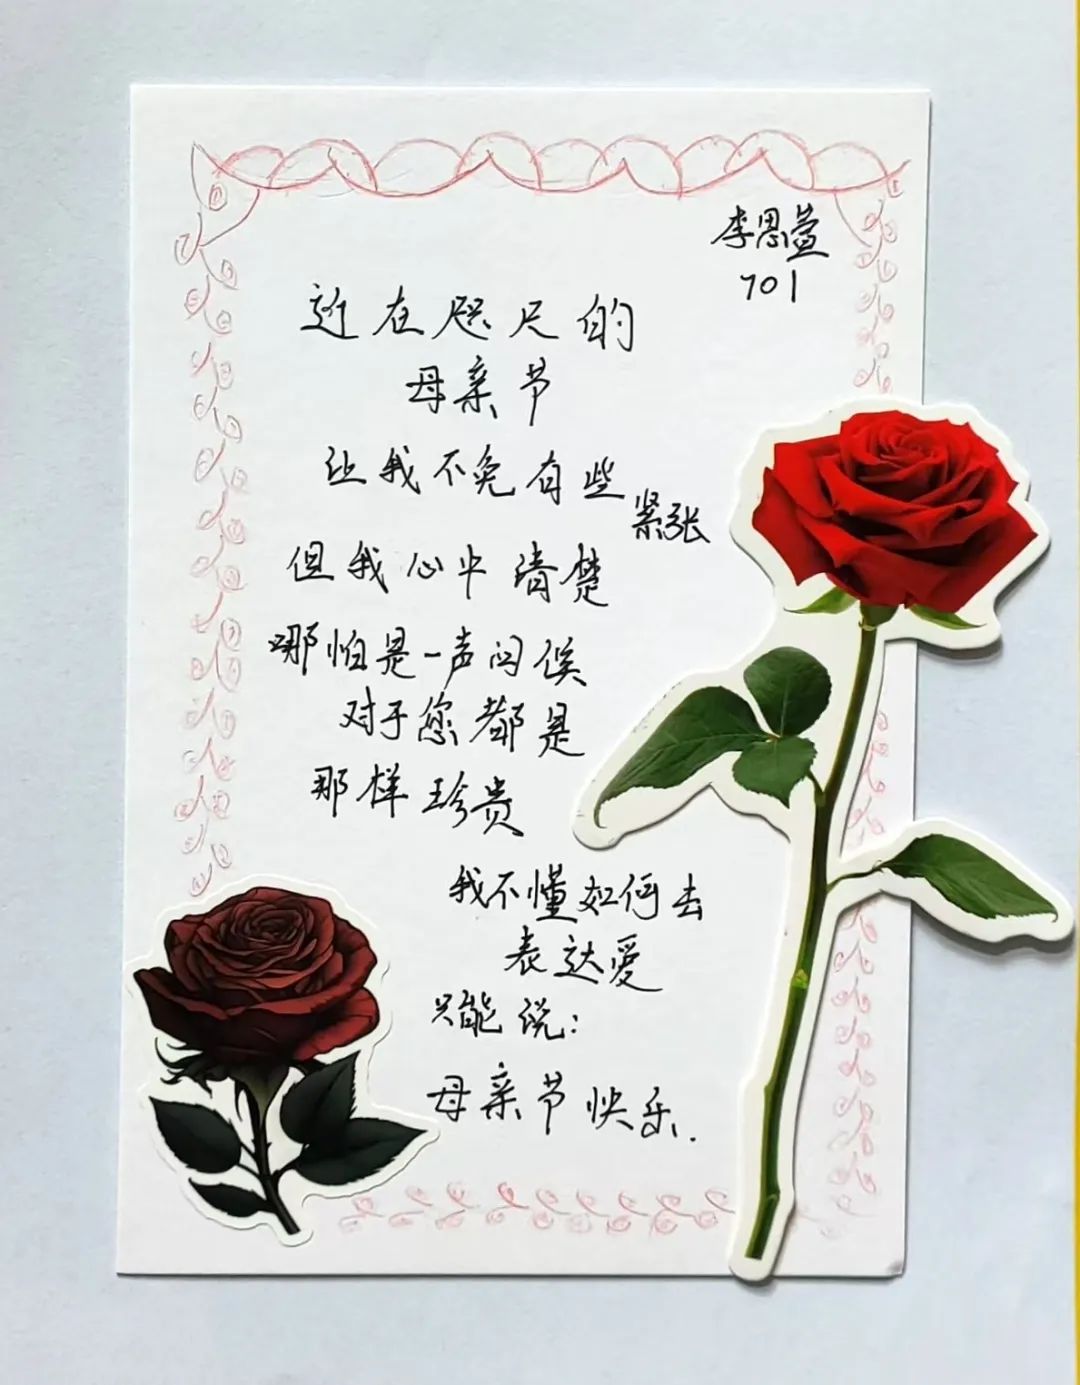 李思萱
701
近在咫尺的
母亲节
让我不免有些
紧张
但我心中清楚
哪怕是一声问候
对于您都是
那样珍贵
我不懂如何去
表达爱
只能说：
母亲节快乐.